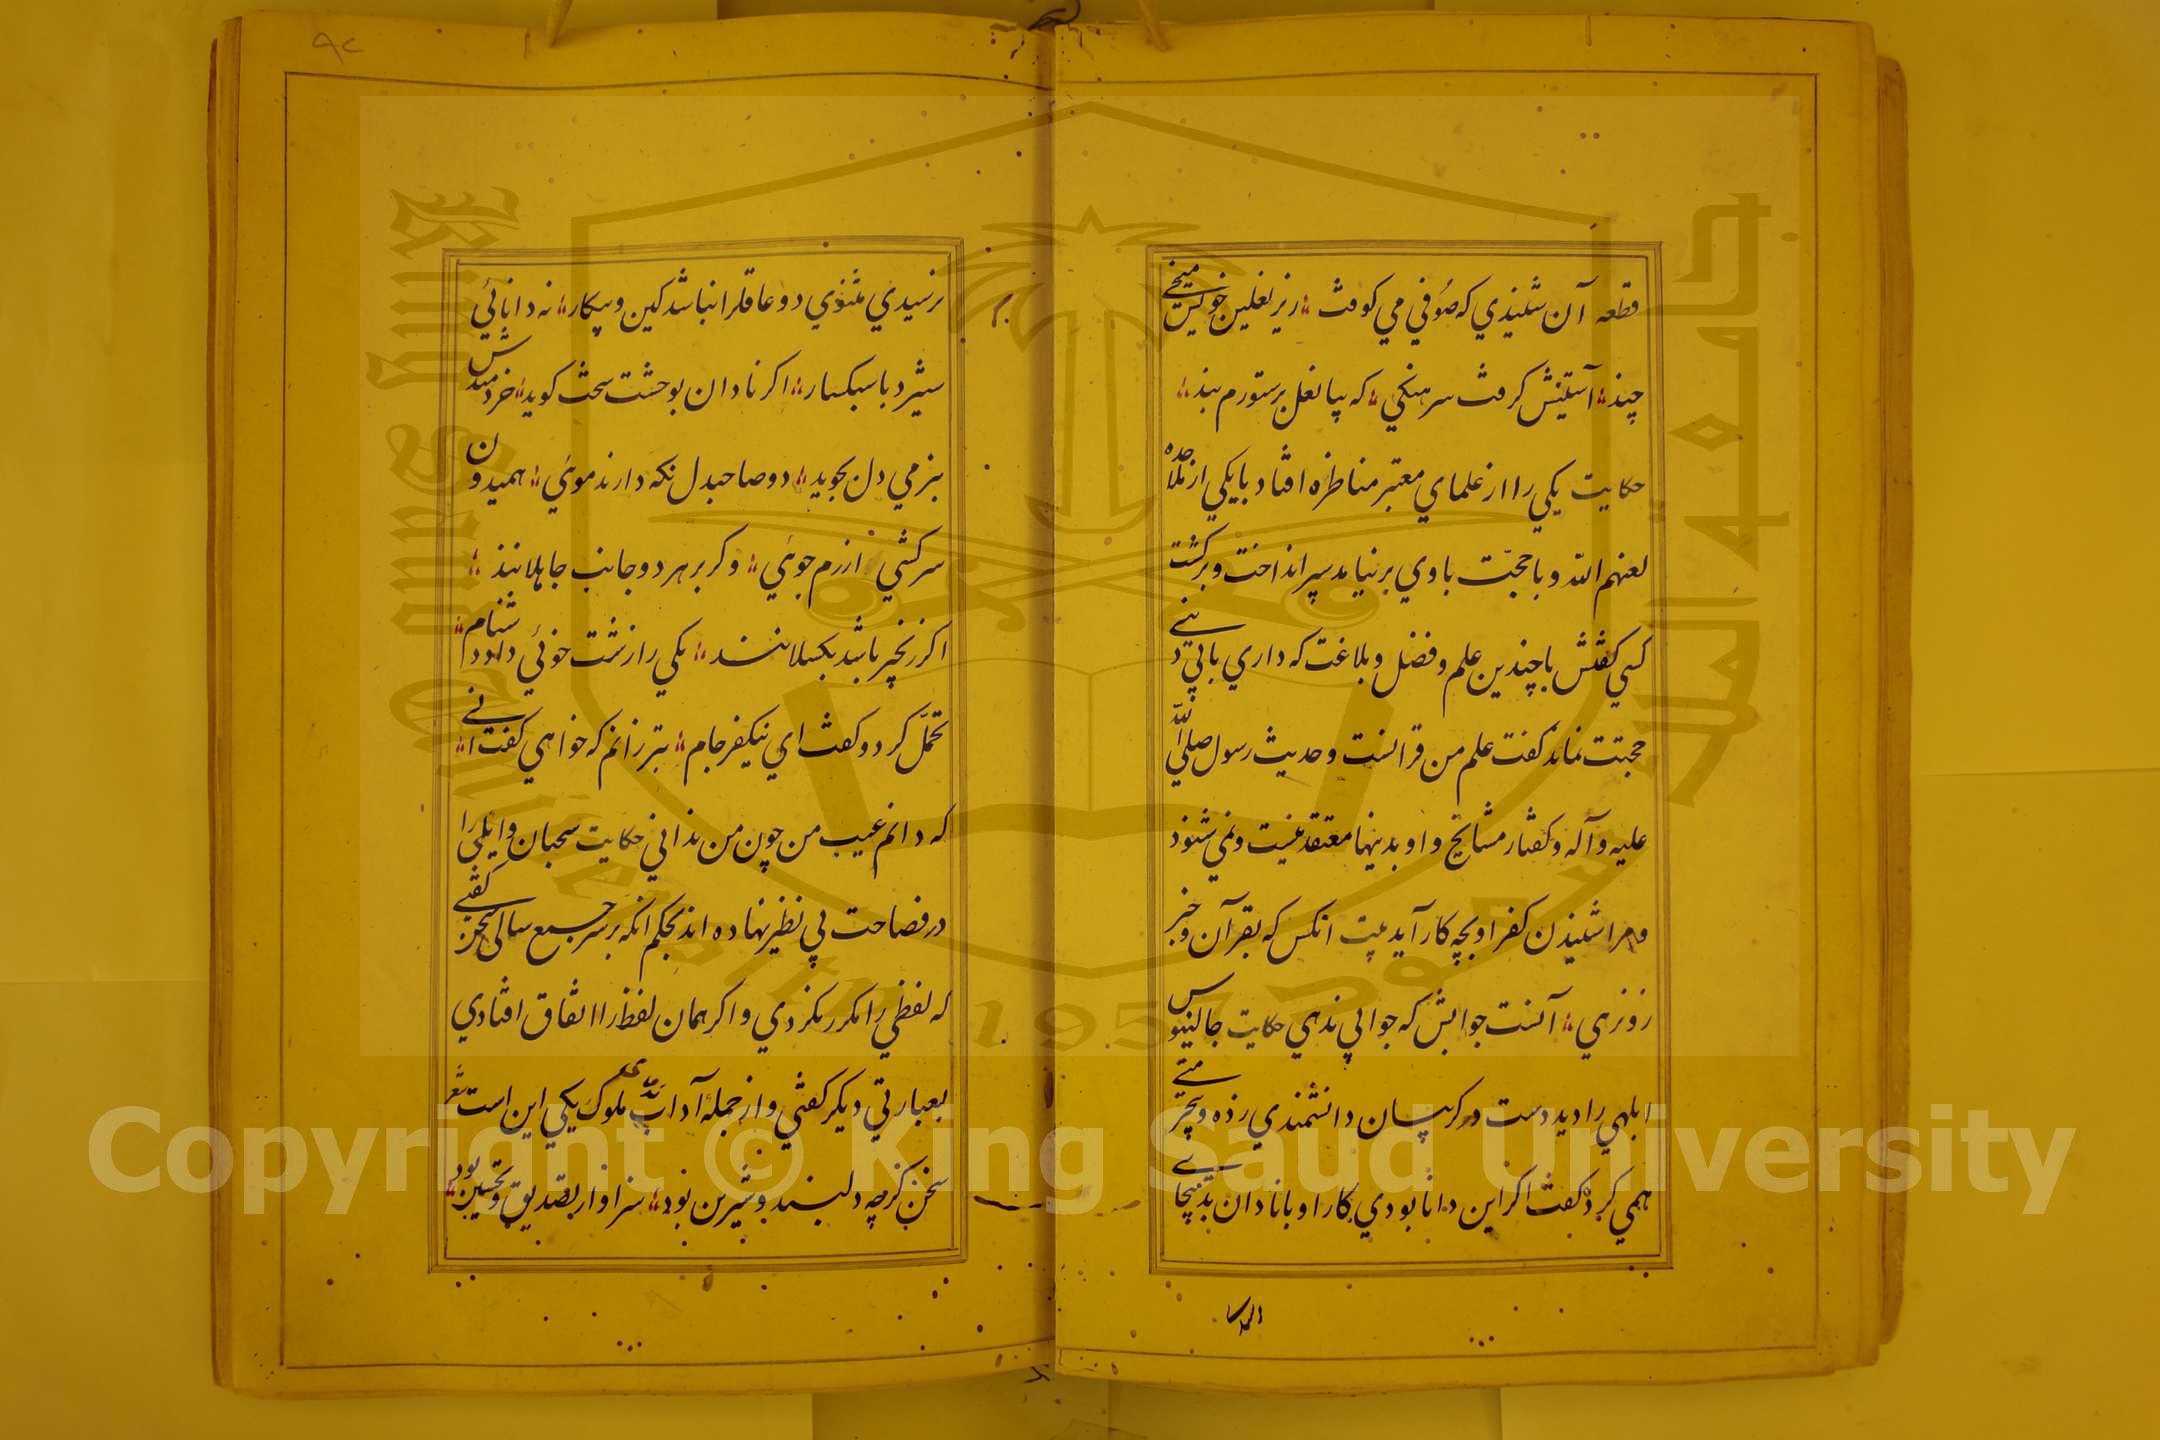 قطعه آن شنیذي که صُوفي مي کوفت زیر نعلین خویش میخي
چند آستینش کرفت سرهنکي که بیا نعل بر ستورم بند
حکایت یکي را از علماي معتبر مناظره افتاد با یکي از ملاحده
لعنهم الله و با حجّت با وي بر نیامد سپر انداخت و برکشت
کسي کفتش با چندین علم و فضل و بلاغت که داري با بي دیني
حجتت نماند کفت علم من قرانست و حدیث رسول صلي الله
علیه و آله و کفتار مشایخ و او بدینها معتقد نیست و نمي شنود
و مرا شنیدن کفر او بچه کار آید بیت انکس که بقرآن و خبر
زو نرهي آنست جوابش که جوابي ندهي حکایت جالینوس
ابلهي را دید دست در کریبان دانشمندي زده و بیحرمتي
همي کرد کفت اکر این دانا بودي کار او با نادان بدینجا
نرسیدي مثنوي دو عاقلرا نباشد کین و پیکار نه دانائي
ستیزد با سبکسار اکر نادان بوحشت سخت کوید خردمندش
بنرمي دل بجوید دو صاحبدل نکه دارند موئي همیدون
سرکشي ازرم جوئي وکر بر هر دو جانب جاهلانند
اکر زنجیر باشد بکسلانند یکي را زشت خوئي داد دشنام
تحمّل کرد و کفت اي نیکفرجام بتر زانم که خواهي کفت اني
که دانم عیب من چون من نداني حکایت سحبان وایلي را
در فصاحت بي نظیر نهاده اند بحکم انکه بر سر جمع سالي سخن کفتي
که لفظي را مکرر نکردي و اکر همان لفظ را اتفاق افتادي
بعبارتي دیکر کفتي و از جملۀ آداب ندماي ملوک یکي این است شعر
سخن کرچه دلبند و شیرین بود سزاوار تصدیق و تحسین بود
Copyright © King Saud University
King Saud University
جامعة الملك سعود
1957